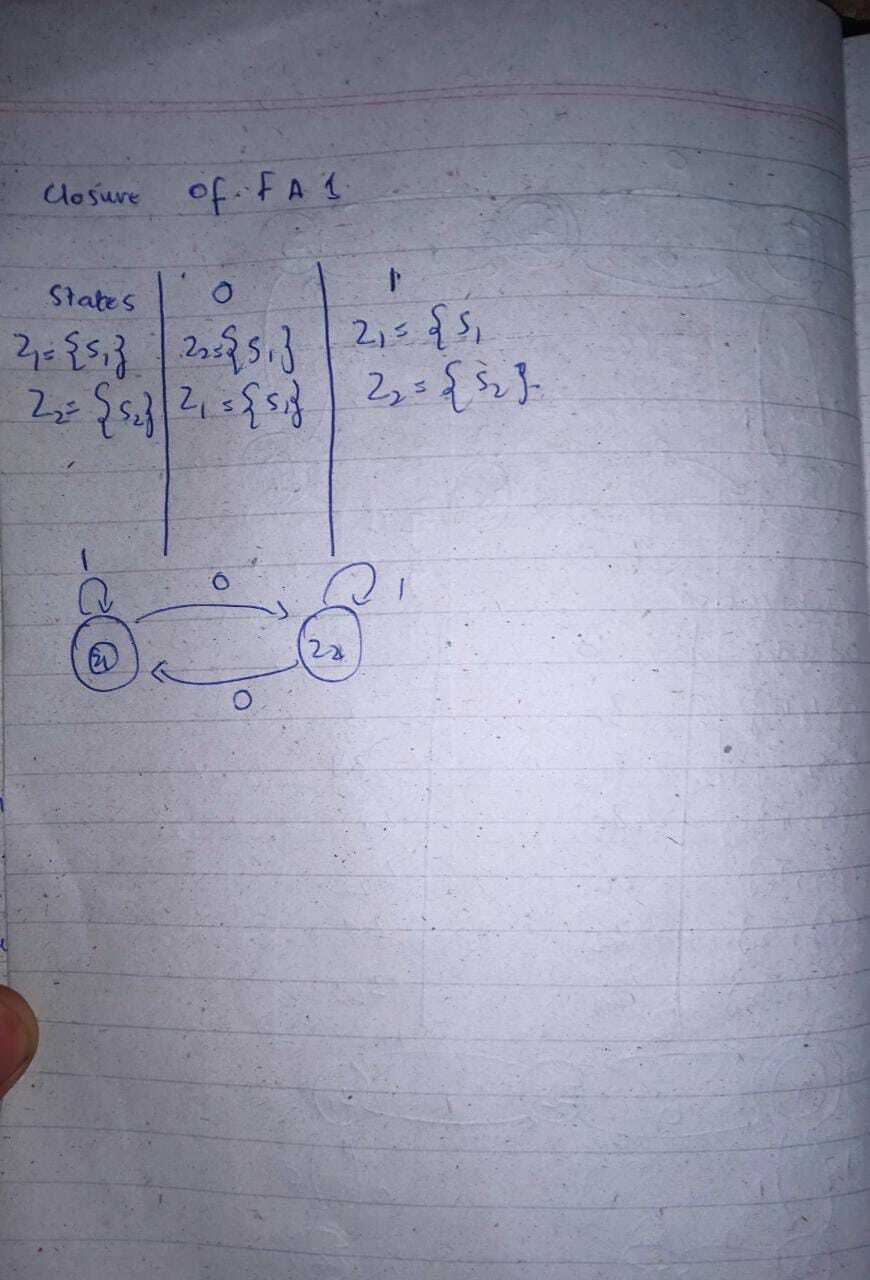 Closure of FA 1
States 0 1
Z1={S1} Z2={S1} Z1={S1
Z2={S2} Z1={S1} Z2={S2}
1 0 1
Z1 Z2
0